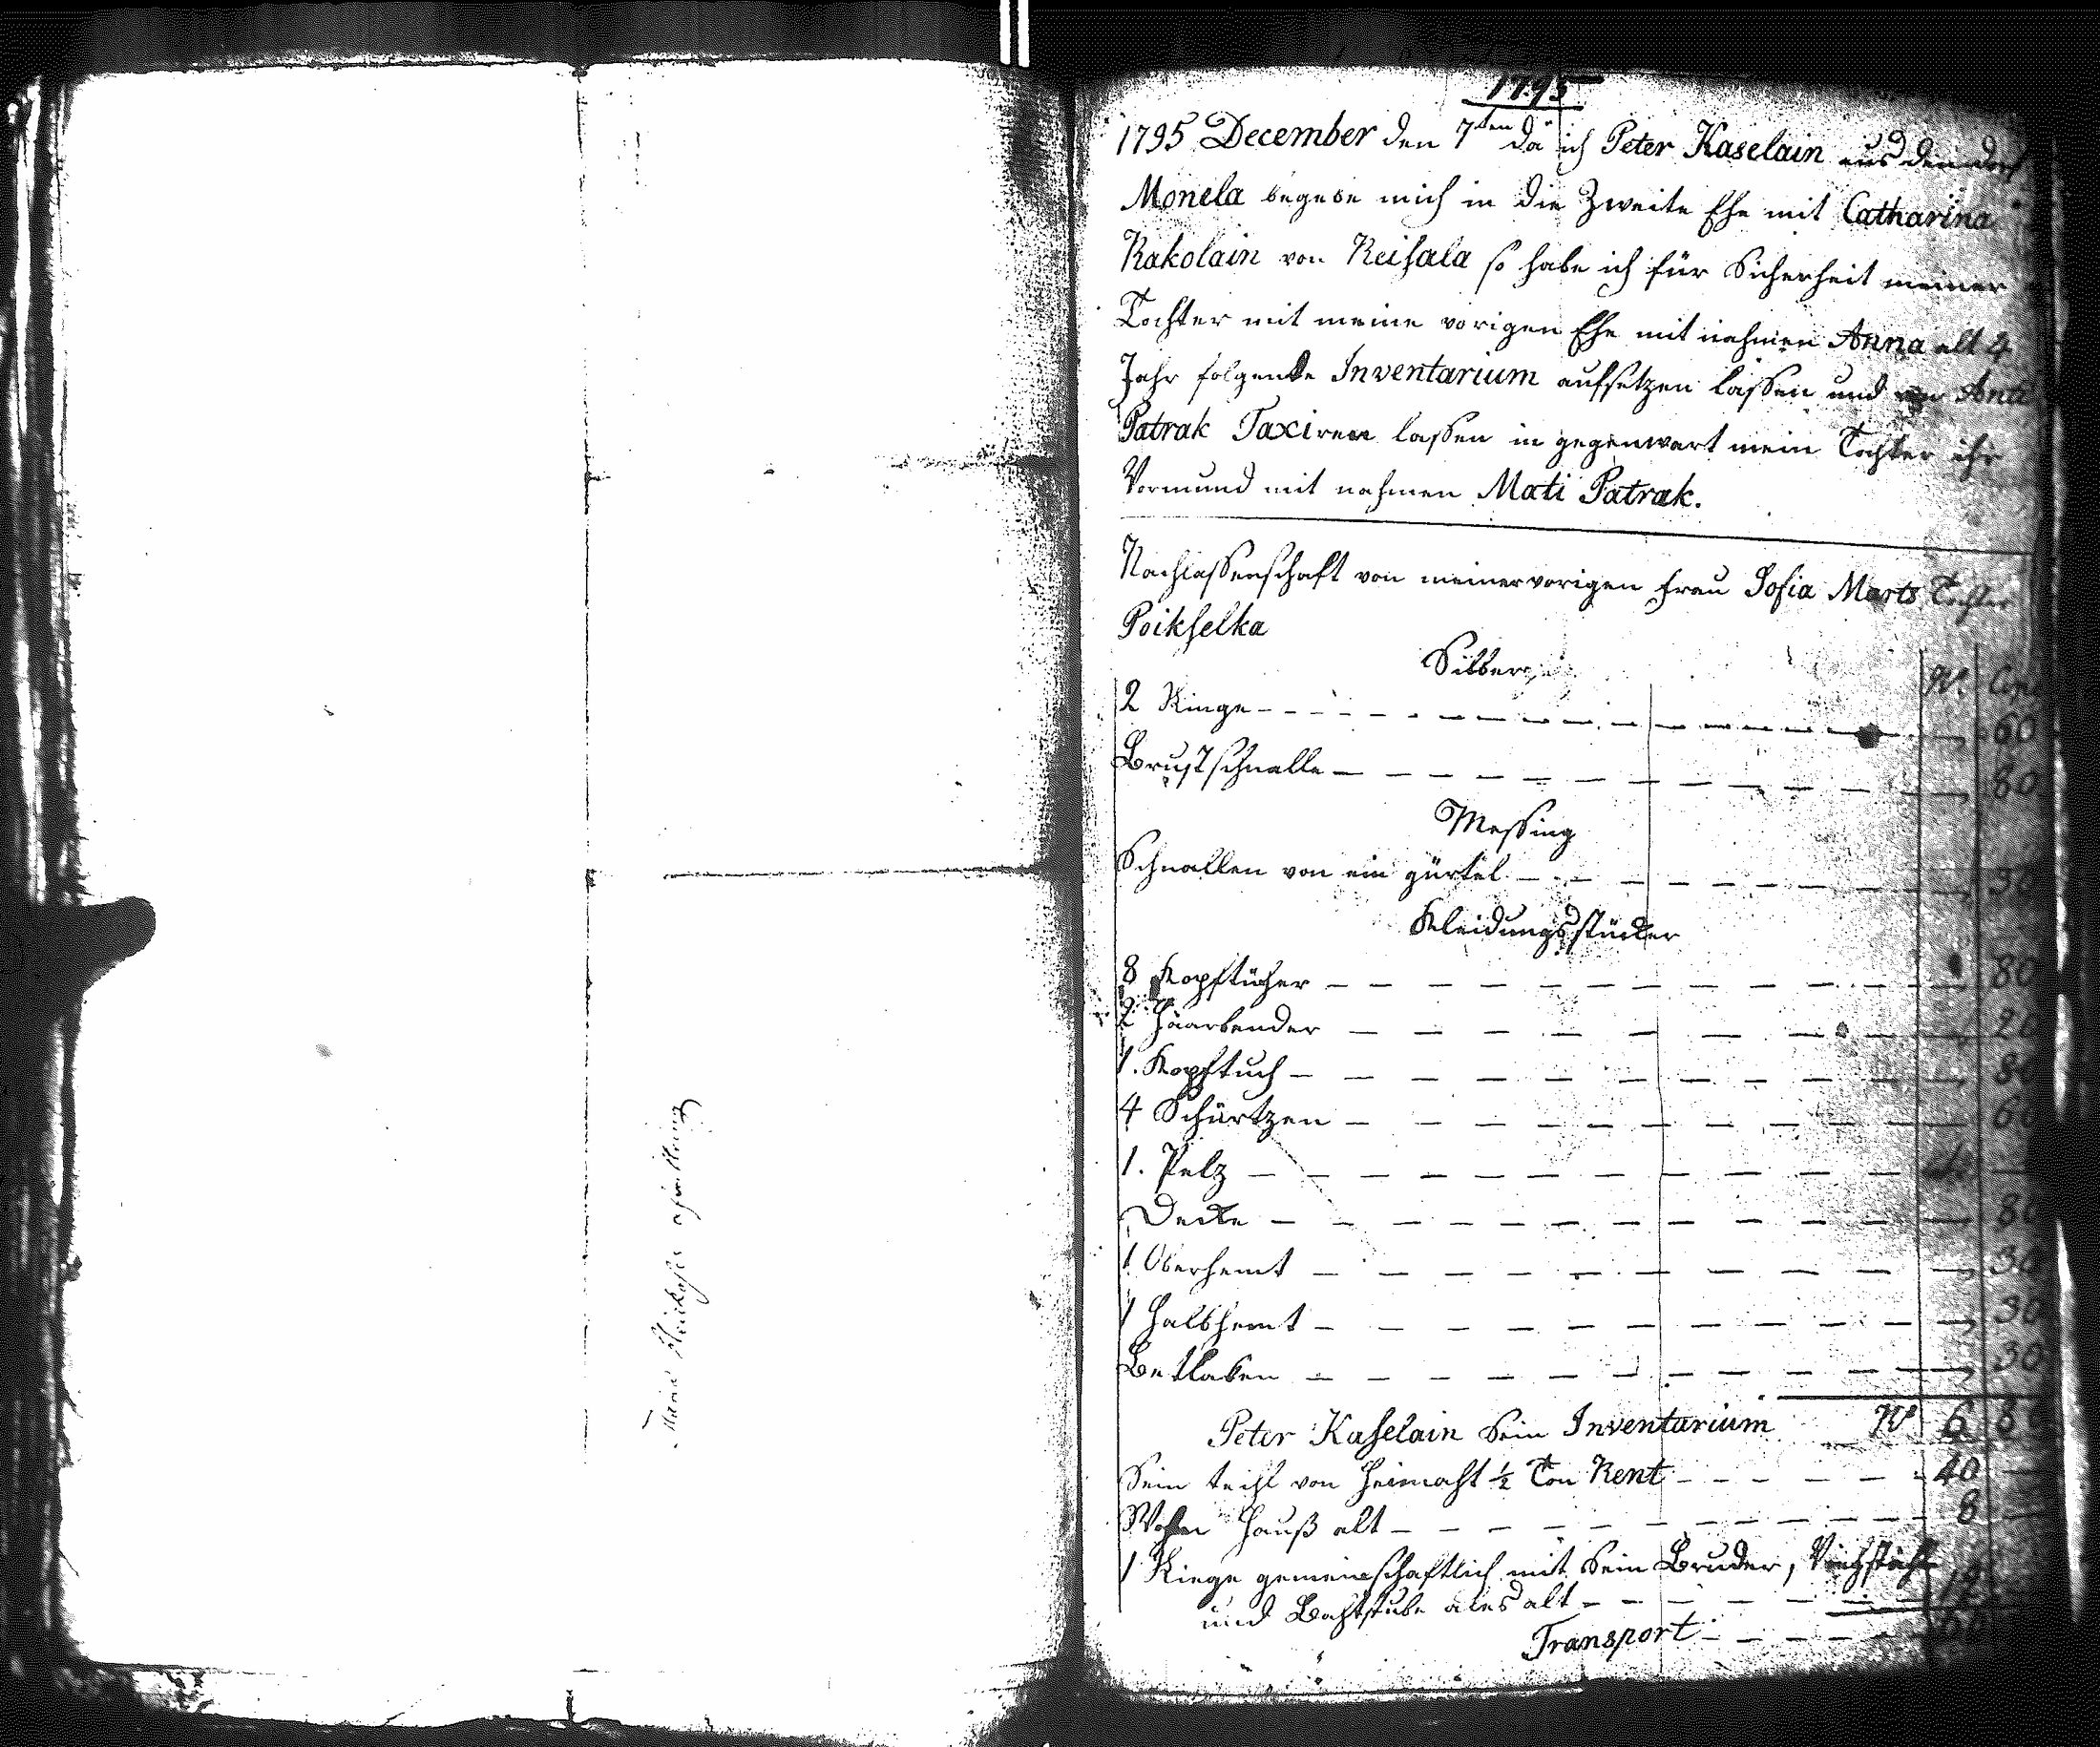 1795
1795 December den 7ten da ich Peter Kaselain aus den dorf
Monela begebe mich in die Zweite Ehe mit Catharina
Kakolain von Reisala so habe ich für Sicherheit meiner
Tochter mit meine vorigen Ehe mit nahmen Anna alt 4
Jahr folgende Inventarium aufsetzen lassen und von Anti
Patrak Taxiren lassen in gegenwart mein Tochter ihr
Vormund mit nahmen Mati Patrak.
Nachlassenschaft von meiner vorigen Frau Sofia Marts Tochter
Poikselka
Silber R. Cop
2 Ringe 60
Brustschnalle 80
Messing
Schnallen von ein gürtel
Kleidungsstücker
8 Kopftücher 80
2 Haarbender 20
1. Kopftuch
4 Schürtzen 60
1. Pelz
Decke 80
1 Oberhemt 30
1 Halbhemt 30
Betlaken 30
Peter Kaselain Sein Inventarium R 6
Sein teihl von Heimaht ½ Ton Rent 40
Wohn Hauß alt 8
1 Riege gemeinschaftlich mit Sein Bruder, Viehställe
und Bahtstube ales alt 12
Transport 60